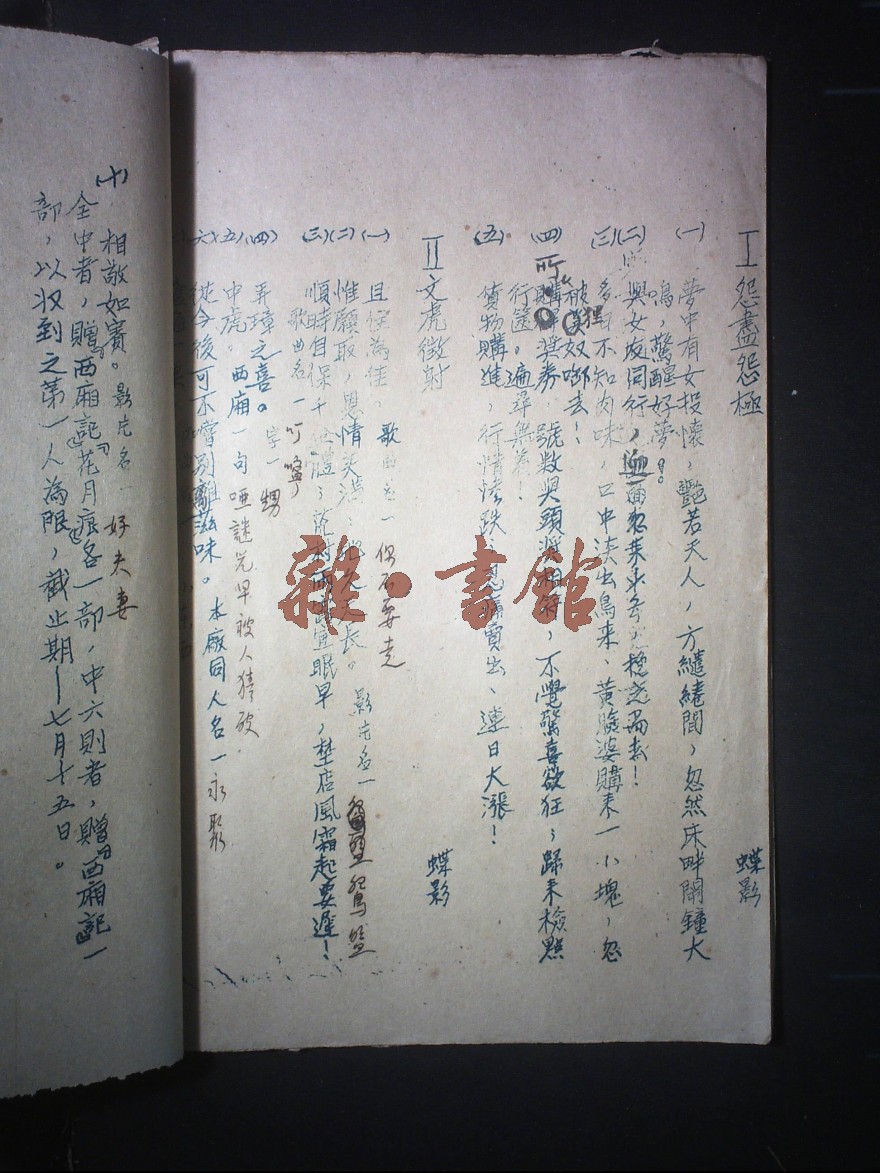 I 怨盡怨極
蝶影
(一) 夢中有女投懷，艷若天人，方繾綣間，忽然床畔鬧鐘大
鳴，驚醒好夢。
(二) 與女友同行，迎面忽
(三) 多日不知肉味，口中淡出鳥來、黃臉婆購來一小塊，忽
被狸奴啣去！
(四) 所購獎券，號數與頭獎相符，不覺驚喜欲狂；歸來檢點
行篋。遍尋無着！
(五) 貨物購進，行情慘跌；賣出、連日大漲！
II 文虎徵射
蝶影
(一) 且住為佳， 歌曲名一 你不要走
(二) 惟願取，恩情美滿，地久天長。 影片名一
(三) 順時自保千金體；荒村雨露宜眠早，埜店風霜起要遲！
歌曲名一 叮嚀
(四) 弄璋之喜。 字一 甥
(五) 中虎。 西廂一句 啞謎兒早被人猜破
(六) 從今後可不嘗別離滋味。 本廠同人名一 永聚
(十) 相敬如賓。 影片名一 好夫妻
全中者，贈西廂記花月痕各一部，中六則者，贈西廂記一
部，以收到之第一人為限，截止期—七月十五日。
雜·書館